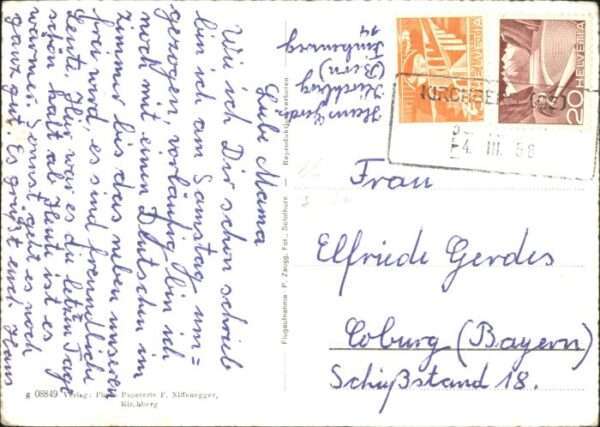 Liebe Mama
Wie ich Dir schon schrieb
bin ich am Samstag um=
gezogen, vorläufig bin ich
noch mit einen Deutschen im
zimmer bis das neben unseren
frei wird, es sind freundliche
Leute. Hier war es die letzten Tage
schön kalt ab Heute ist es
wärmer. Sonst geht es noch
ganz gut. Es grüßt und
Hans
Hans Gerdes
Kirchberg
(Bern)
14
HELVETIA
HELVETIA
20
KIRCHBERG
24. III. 58
Frau
Elfriede Gerdes
Coburg (Bayern)
Schießstand 18.
Flugaufnahme P. Zaugg, Fot., Solothurn — Reproduktion verboten
g 08849 Verlag: Papeterie F. Niffenegger,
Kirchberg